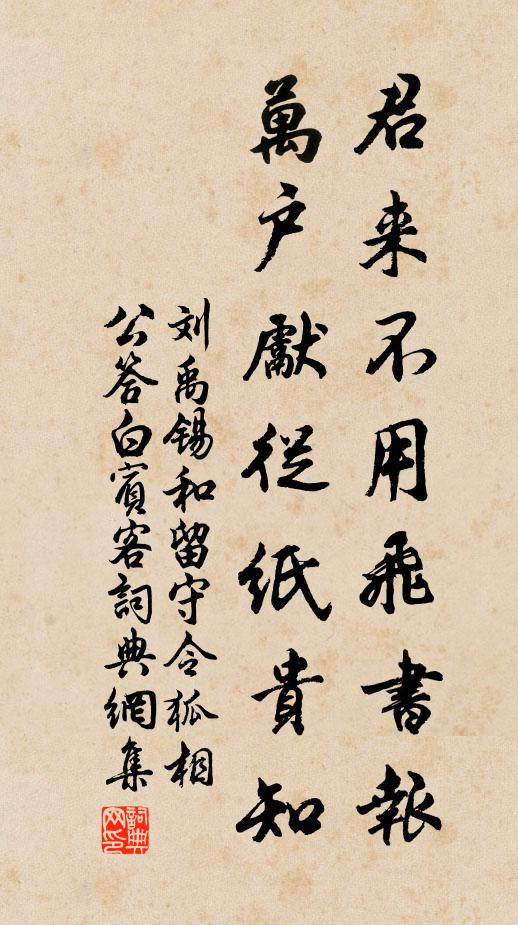 君来不用飛書報
萬户獻從紙貴知
刘禹锡和留守令狐相
公答白賓客詞典網集
詞典
网印